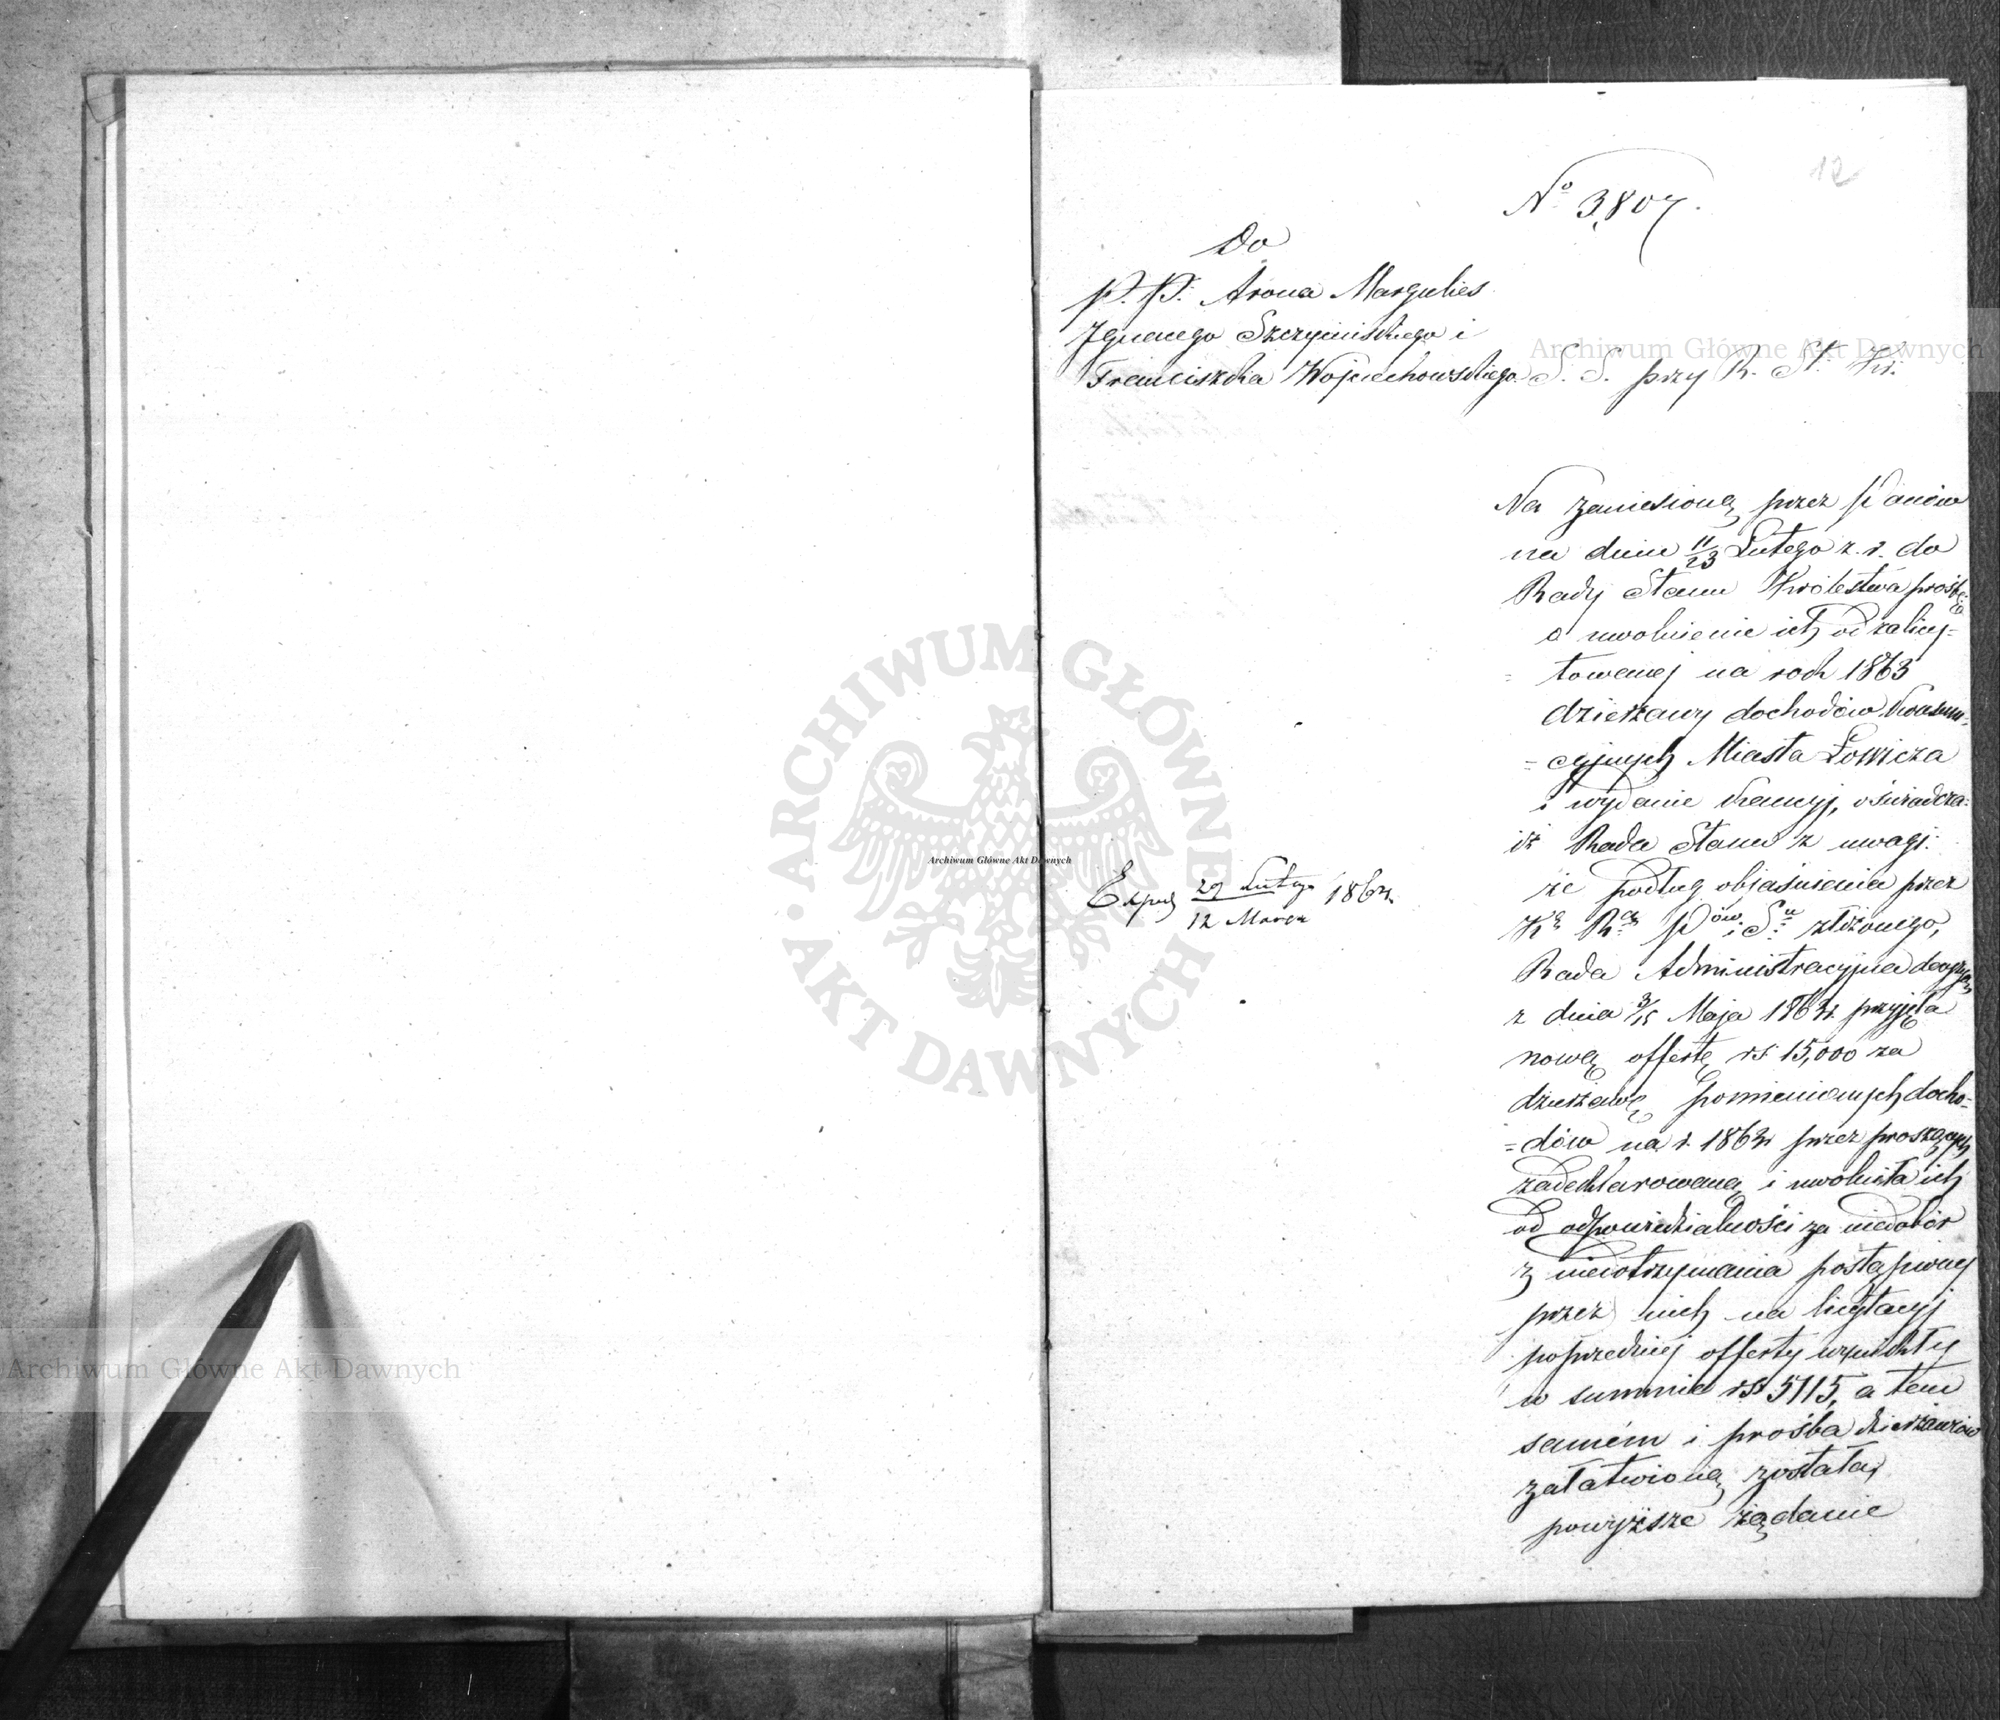 12
No 3,807.
Do
P. P. Arona Margulies
Ignacego Szczycińskiego i
Franciszka Wojciechowskiego S. S. przy R. St. Kr.
Na zaniesioną przez Panów
na dniu 11/23 Lutego z. r. do
Rady Stanu Królestwa prośbę
o uwolnienie ich od zalicy=
=towanej na rok 1863
dzierżawy dochodów konsum=
=cyjnych Miasta Łowicza
i wydanie kaucyj, oświadcza=
iż Rada Stanu z uwagi
że podług objaśnienia przez
Exped 29 Lutego / 12 Marca 1864
złożonego,
Rada Administracyjna decyzyą
z dnia 3/15 Maja 1863 r. przyjęła
nową offertę rs 15,000 za
dzierżawę pomienionych docho=
=dów na r. 1863 przez proszących
zadeklarowaną i uwolniła ich
od odpowiedzialności za niedobór
z niedotrzymania postąpionej
przez nich na licytacyj
poprzedniej offerty wynikły
w summie rs 5115, a tem
samém i prośba dzierżawców
załatwioną została,
powyższe żądanie
Archiwum Główne Akt Dawnych
Archiwum Główne Akt Dawnych
Archiwum Główne Akt Dawnych
ARCHIWUM GŁÓWNE AKT DAWNYCH